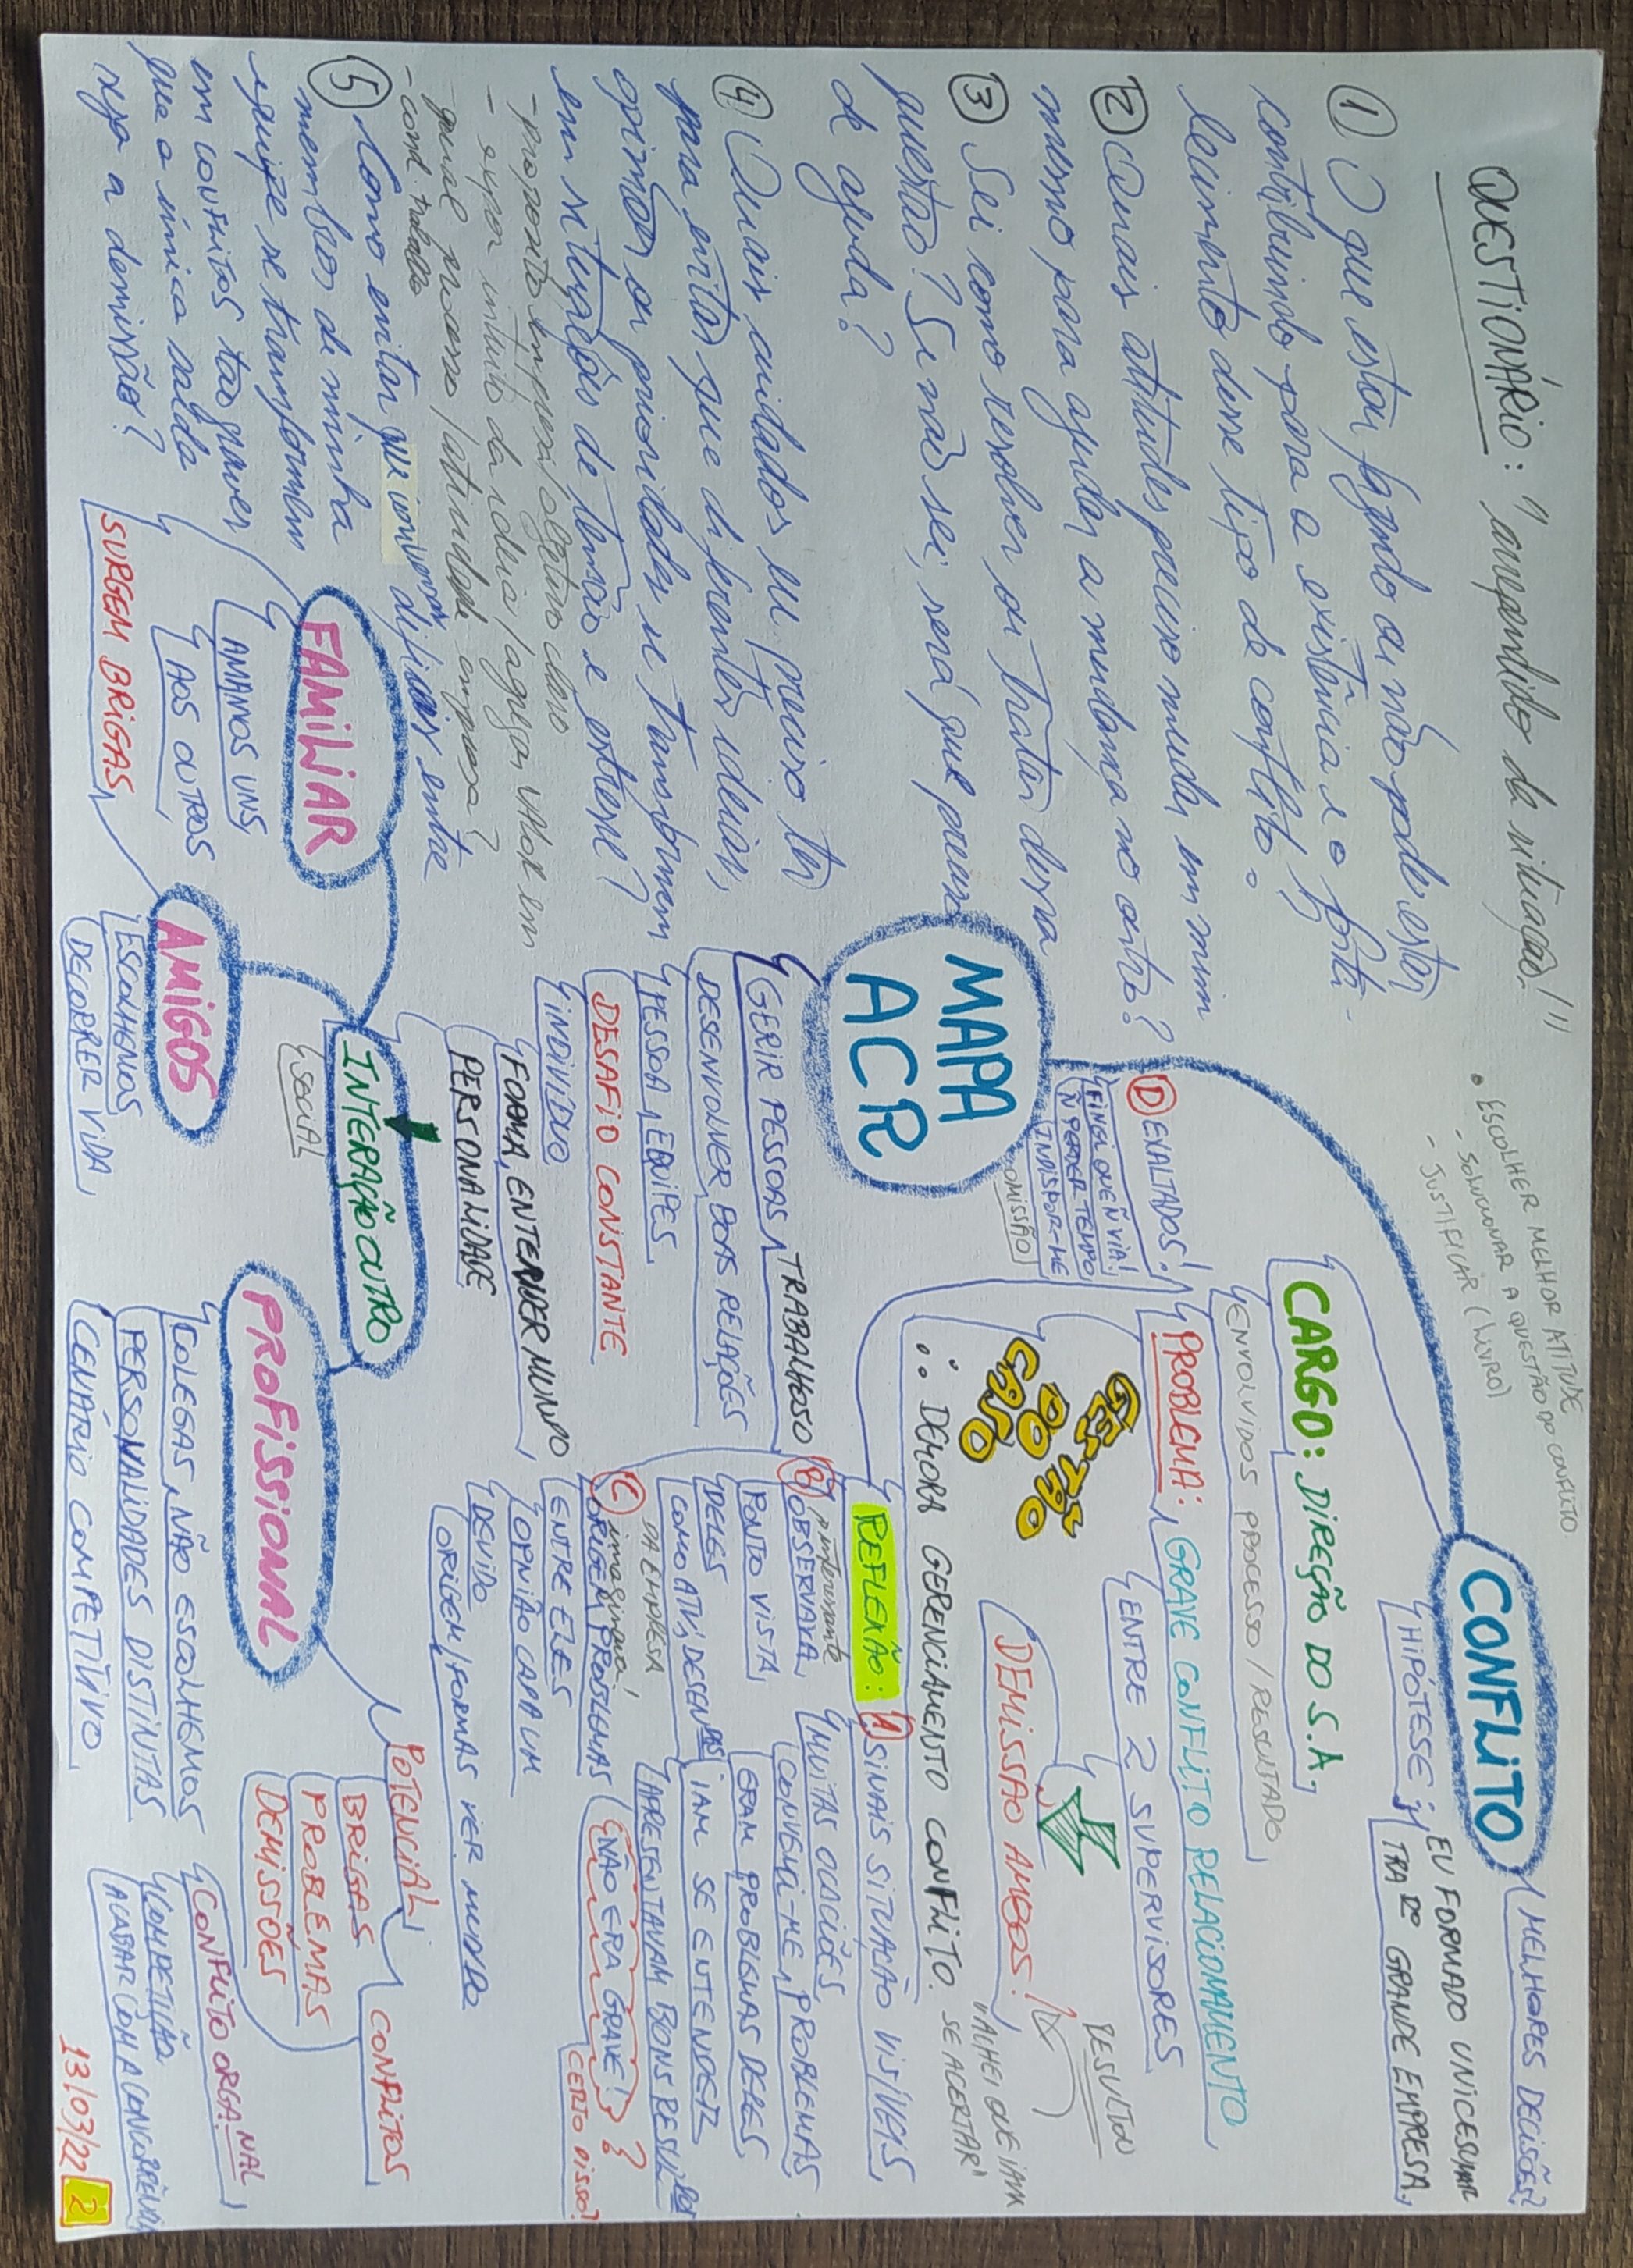 QUESTIONÁRIO: "arrependido da situação!"
① O que estou fazendo ou não pode estar
contribuindo para a existência e o forta-
lecimento desse tipo de conflito?
② Quais atitudes preciso mudar em mim
mesmo para ajudar a mudança no outro?
③ Sei como resolver ou tratar dessa
questão? Se não sei, será que preciso
de ajuda?
④ Quais cuidados eu preciso ter
para evitar que diferentes ideias,
opiniões ou prioridades se transformem
em situações de tensão e estresse?
- proposito empresa/objetivo claro
- expor intuito da ideia / agregar VALOR em
qual processo / atividade empresa?
- cond. trabalho
⑤ Como evitar que conversas difíceis entre
membros de minha
equipe se transformem
em CONFLITOS tão graves
que a única saída
seja a demissão?
• ESCOLHER MELHOR ATITUDE
- SOLUCIONAR A QUESTÃO DO CONFLITO
- JUSTIFICAR (LIVRO)
CONFLITO
MELHORES DECISÕES?
HIPÓTESE:
EU FORMADO UNICESUMAR
TRA DO GRANDE EMPRESA.
CARGO: DIREÇÃO DO S.A.
ENVOLVIDOS PROCESSO / RESULTADO
PROBLEMA: GRAVE CONFLITO RELACIONAMENTO
ENTRE 2 SUPERVISORES
RESULTOU
DEMISSÃO AMBOS!
"ACHEI QUE IAM
SE ACERTAR"
GESTÃO
DO
CASO
∴ DEMORA GERENCIAMENTO CONFLITO.
D EXALTADOS!
FINGI QUE Ñ VIA!
Ñ PERDER TEMPO
INDISPOR-ME
OMISSÃO
MAPA
ACR
REFLEXÃO:
A SINAIS SITUAÇÃO VISÍVEIS
MUITAS OCACIÕES
CONVENCI-ME, PROBLEMAS
ERAM PROBLEMAS DELES
IAM SE ENTENDER
APRESENTAVAM BONS RESUL DOS
NÃO ERA GRAVE! ?
CERTO DISSO?
B interessante
OBSERVAVA
PONTO VISTA
DELES
COMO ATV, DESEN DAS
DA EMPRESA
C imaginava!
ORIGEM PROBLEMAS
ENTRE ELES
OPNIÃO CADA UM
DEVIDO
ORIGEM/FORMAS VER MUNDO
GERIR PESSOAS TRABALHOSO
DESENVOLVER BOAS RELAÇÕES
PESSOA, EQUIPES
DESAFIO CONSTANTE
INDIVÍDUO
FORMA, ENTENDER MUNDO
PERSONALIDADE
INTERAÇÃO OUTRO
SOCIAL
FAMILIAR
AMAMOS UNS
AOS OUTROS
SURGEM BRIGAS
AMIGOS
ESCOLHEMOS
DECORRER VIDA
PROFISSIONAL
COLEGAS NÃO ESCOLHEMOS
PERSONALIDADES DISTINTAS
CENÁRIO COMPETITIVO
POTENCIAL
CONFLITOS
BRIGAS
PROBLEMAS
DEMISSÕES
CONFLITO ORGA.NAL
COMPETIÇÃO
ACABAR COM A CONCORRÊNCIA
13/03/22 2